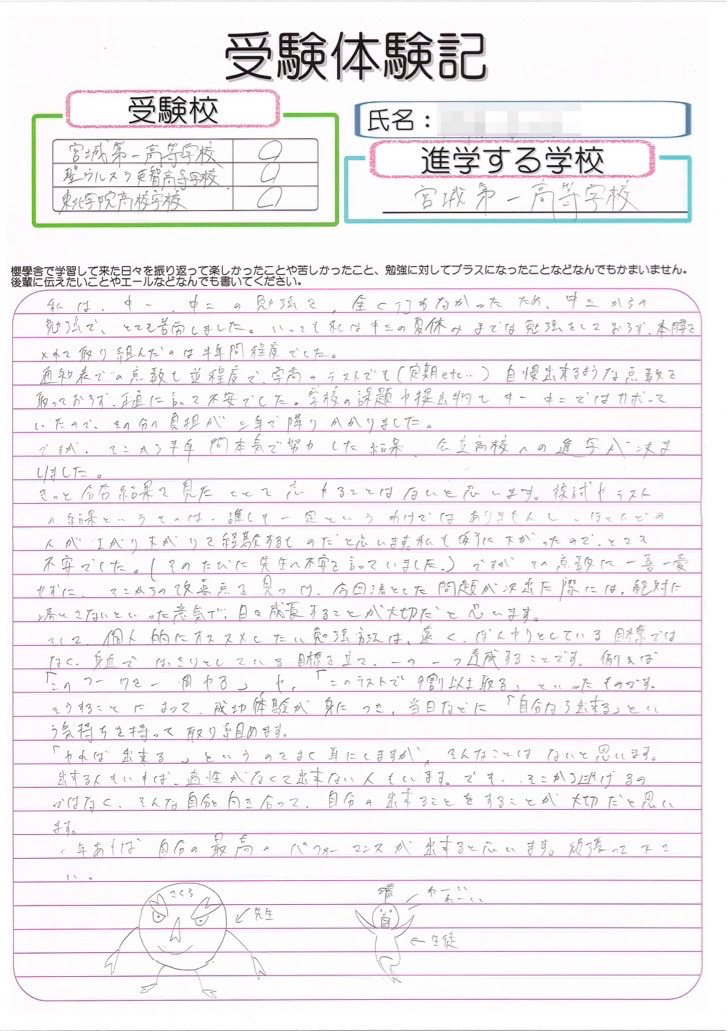 受験体験記
受験校
宮城第一高等学校 ○
聖ウルスラ英智高等学校 ○
東北学院高校学校 ○
氏名：
進学する学校
宮城第一高等学校
櫻學舎で学習して来た日々を振り返って楽しかったことや苦しかったこと、勉強に対してプラスになったことなどなんでもかまいません。
後輩に伝えたいことやエールなどなんでも書いてください。
私は、中一、中二の勉強を、全く行わなかったため、中三からの
勉強で、とても苦労しました。いっても私は中三の夏休みまでは勉強をしておらず、本腰を
入れて取り組んだのは半年間程度でした。
通知表での点数も並程度で、学高のテストでも(定期etc…)自慢出来るような点数を
取っておらず、正直に言って不安でした。学校の課題や提出物も中一中二ではサボって
いたので、その分の負担が三年で降りかかりました。
ですが、そこから半年間本気で努力した結果、公立高校への進学が決ま
りました。
きっと合否結果を見たことで
応やることはないと思います。模試やテスト
の結果というものは、誰しも一定というわけではありませんし、ほとんどの
人が上がり下がりを経験するものだと思います。私も
下がったので、とても
不安でした。(そのたびに先生へ不安を言っていました。)ですが、その点数に一喜一憂
せずに、そこからの改善点を見つけ、今回落とした問題が次出た際には、絶対に
落とさないといった意気で、日々成長することが大切だと思います。
そして、個人的にオススメしたい勉強方法は、遠く、ぼんやりとしている目標では
なく、身近ではっきりとしている目標を立て、一つ一つ達成することです。例えば
「このワークを一周やる」や、「このテストで9割以上取る」といったものです。
そうすることによって、成功体験が身につき、当日などに「自分なら出来る」とい
う気持ちを持って取り組めます。
「やれば出来る」というのをよく耳にしますが、そんなことはないと思います。
出来る人もいれば、適性がなくて出来ない人もいます。でも、そこから逃げるの
ではなく、そんな自分と向き合って、自分の出来ることをすることが大切だと思い
ます。
一年あれば自分の最高のパフォーマンスが出来ると思います。頑張って下さ
い。
さくら
←先生
わーい
わーい
←生徒